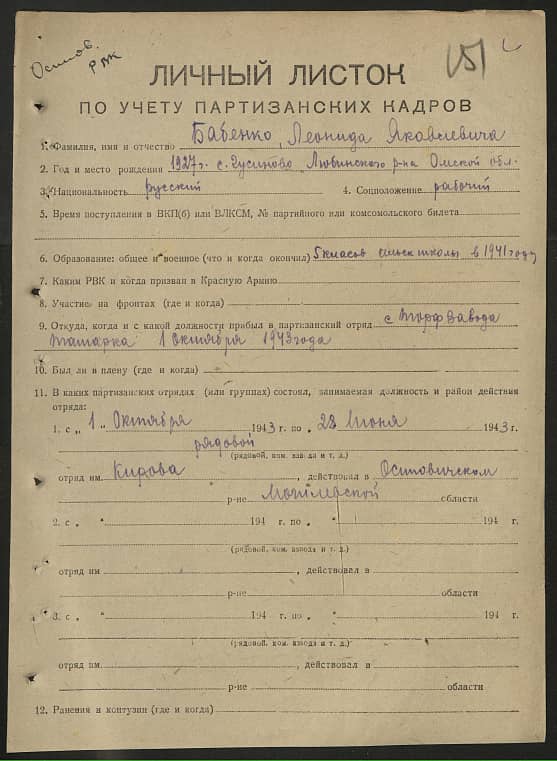 Осипов. РВК
151
ЛИЧНЫЙ ЛИСТОК
ПО УЧЕТУ ПАРТИЗАНСКИХ КАДРОВ
1. Фамилия, имя и отчество Бабенко, Леонида Яковлевича
2. Год и место рождения 1927г. с. Гусиново Любинского р-на Омской обл.
3. Национальность русский 4. Соцположение рабочий
5. Время поступления в ВКП(б) или ВЛКСМ, № партийного или комсомольского билета
6. Образование: общее и военное (что и когда окончил) 5 классов сельск школы в 1941 году
7. Каким РВК и когда призван в Красную Армию
8. Участие на фронтах (где и когда)
9. Откуда, когда и с какой должности прибыл в партизанский отряд с Торфзавода
Татарка 1 октября 1943 года
10. Был ли в плену (где и когда)
11. В каких партизанских отрядах (или группах) состоял, занимаемая должность и район действия
отряда:
1. с „ 1 " Октября 1943 г. по „ 28 Июня 1943 г.
рядовой
(рядовой, ком. взвода и т. д.)
отряд им. Кирова, действовал в Осиповичском
р-не Могилевской области
2. с „ " 194 г. по „ " 194 г.
(рядовой, ком. взвода и т. д.)
отряд им , действовал в
р-не области
3. с „ " 194 г. по „ " 194 г.
(рядовой, ком. взвода и т. д.)
отряд им. , действовал в
р-не области
12. Ранения и контузии (где и когда)